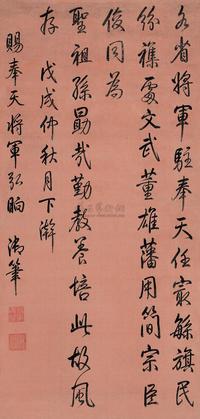 各省將軍駐奉天任最緐旗民
紛襍處文武董雄藩用簡宗臣
俊同為
聖祖孫勗哉勤教養培此故風
存 戊戌仲秋月下澣
賜奉天將軍弘晌 御筆